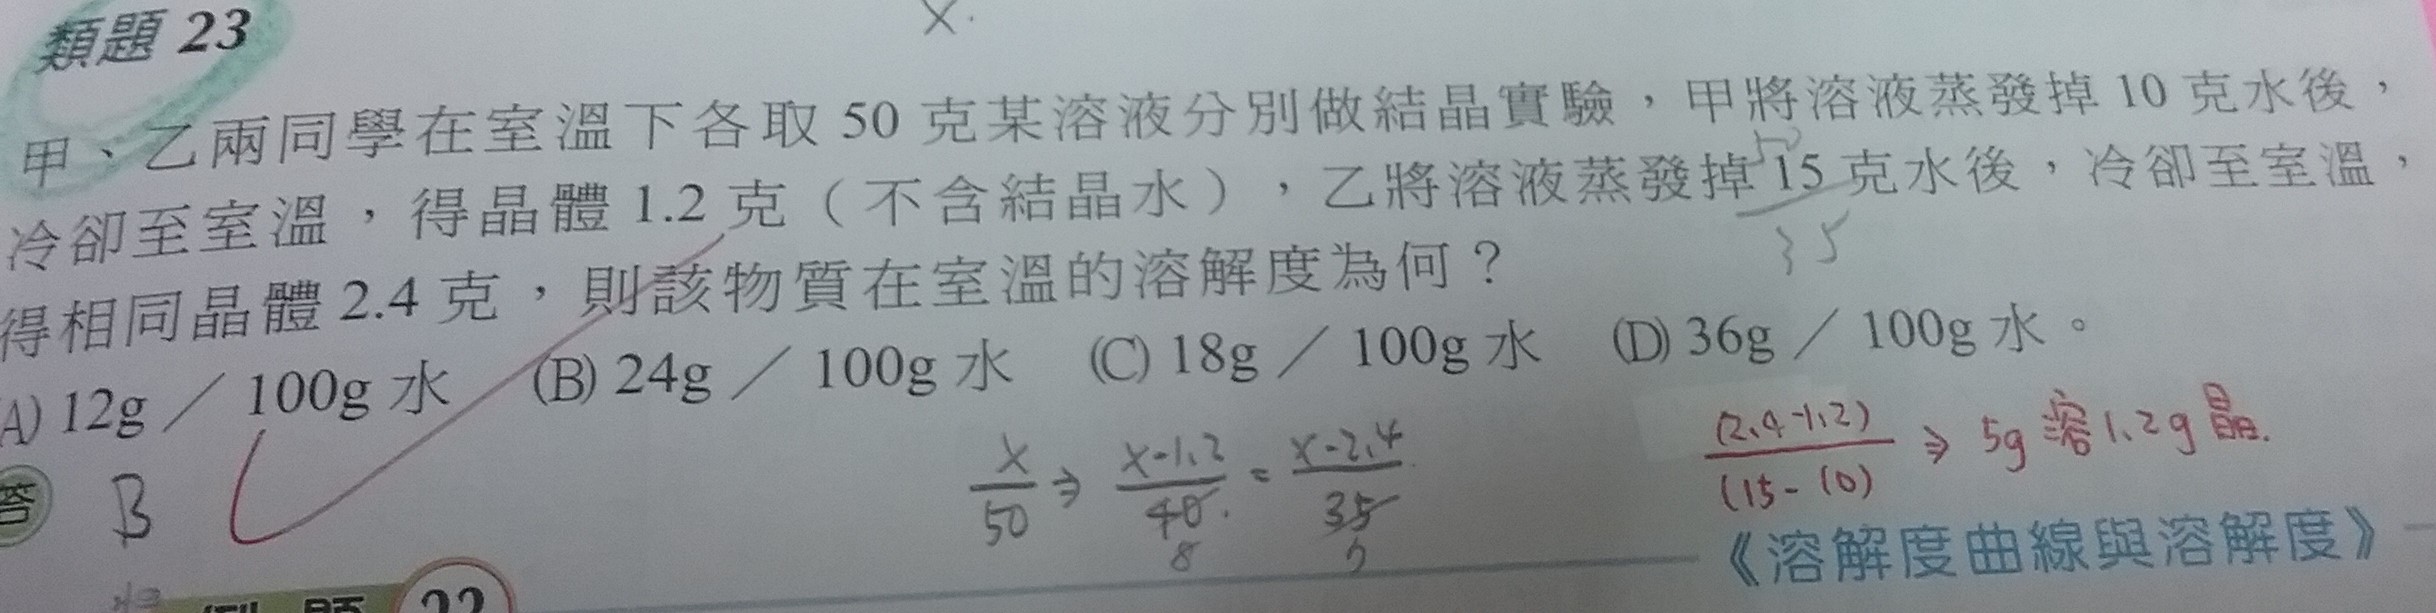 類題 23
x.
甲、乙兩同學在室溫下各取 50 克某溶液分別做結晶實驗,甲將溶液蒸發掉 10 克水後,
冷卻至室溫,得晶體 1.2 克(不含結晶水),乙將溶液蒸發掉 15 克水後,冷卻至室溫,
35
得相同晶體 2.4 克,則該物質在室溫的溶解度為何?
(A) 12g / 100g 水 (B) 24g / 100g 水 (C) 18g / 100g 水 (D) 36g / 100g 水。
答 B
x/50 ⇒ x-1.2/40. = x-2.4/35
8
(2.4-1.2)/(15-10) ⇒ 5g 溶 1.2g 晶.
《溶解度曲線與溶解度》
22